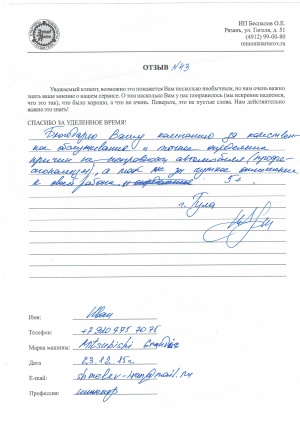 ИП Беспалов О.Е.
Рязань, ул. Гоголя, д. 51
(4912) 99-00-80
remontstarterov.ru
ОТЗЫВ №43
Уважаемый клиент, возможно это покажется Вам несколько необычным, но нам очень важно
знать ваше мнение о нашем сервисе. О том насколько Вам у нас понравилось (мы искренне надеемся,
что это так), что было хорошо, а что не очень. Поверьте, это не пустые слова. Нам действительно
важно это знать!
СПАСИБО ЗА УДЕЛЕННОЕ ВРЕМЯ!
Благодарю Вашу компанию за качествен-
ное обслуживание и точное определение
причин не исправности автомобиля
а так же за чуткое отношение
к своей работе 5+.
г. Тула
Имя: Иван
Телефон: +7 920 975 7075
Марка машины: Mitsubishi
Дата 23.12.15г.
E-mail:
Профессия: инженер